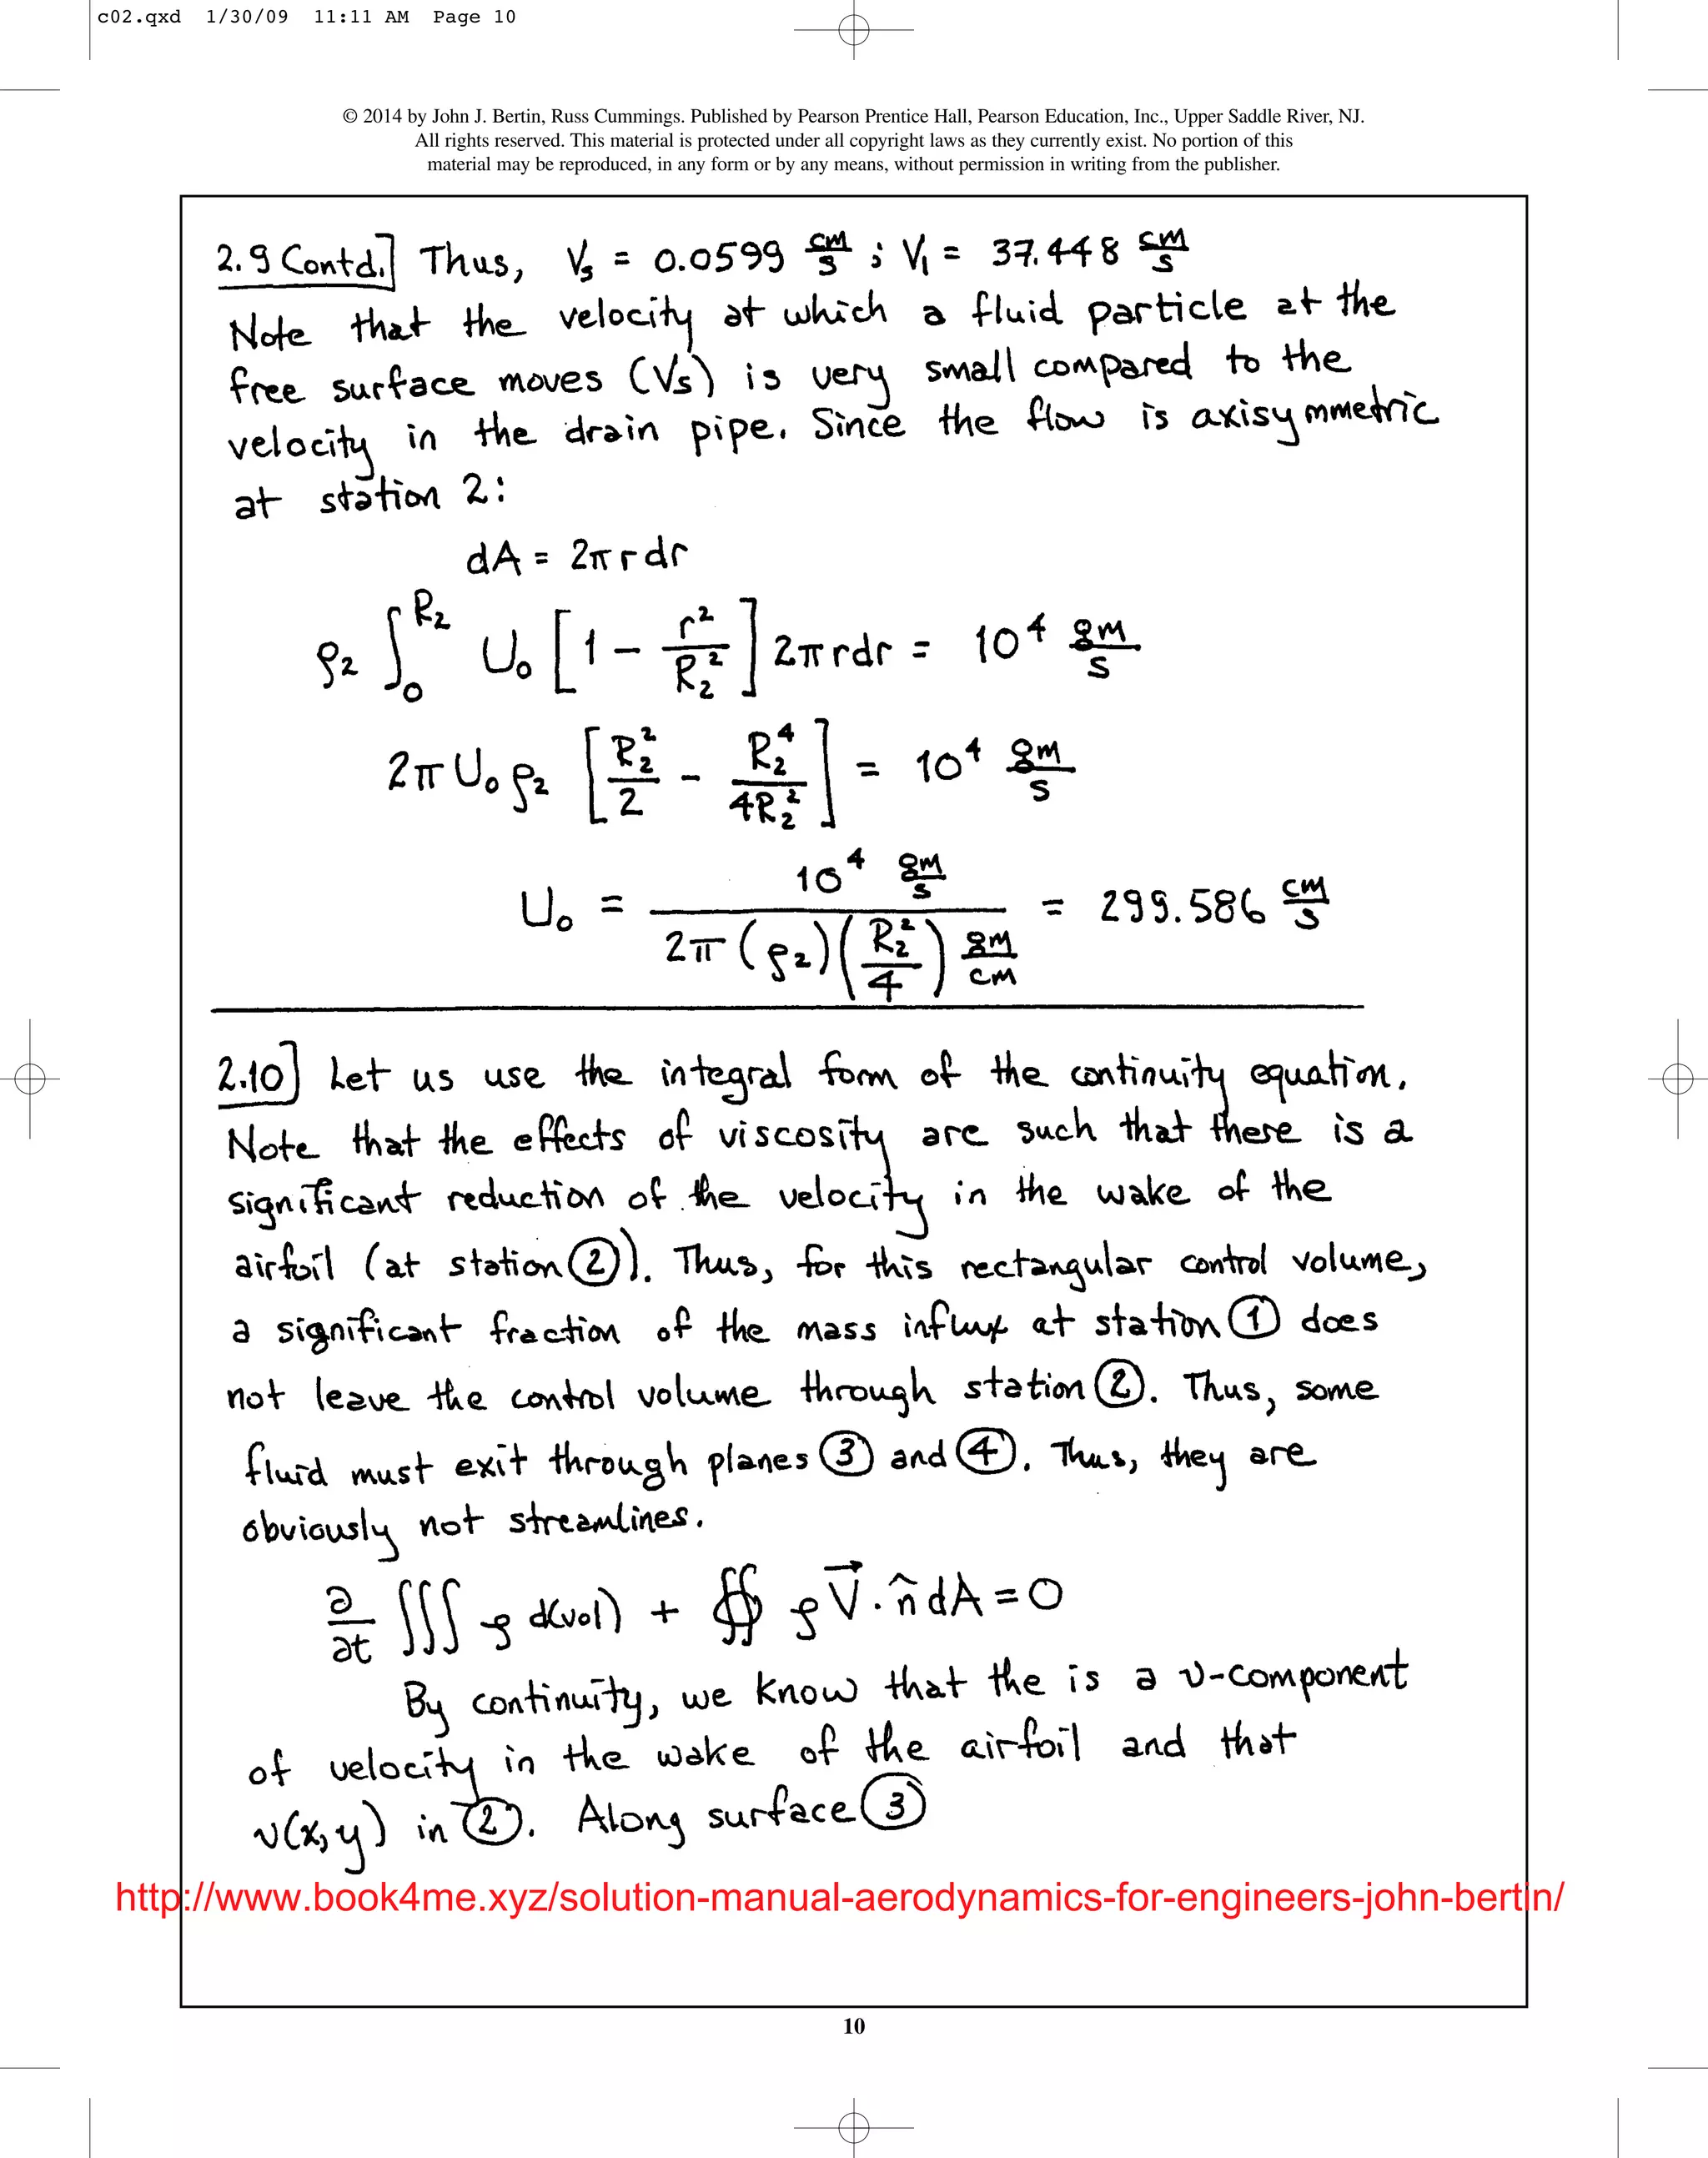 c02.qxd 1/30/09 11:11 AM Page 10
© 2014 by John J. Bertin, Russ Cummings. Published by Pearson Prentice Hall, Pearson Education, Inc., Upper Saddle River, NJ.
All rights reserved. This material is protected under all copyright laws as they currently exist. No portion of this
material may be reproduced, in any form or by any means, without permission in writing from the publisher.
2.9 Contd.] Thus, Vs = 0.0599 cm/s ; V₁ = 37.448 cm/s
Note that the velocity at which a fluid particle at the
free surface moves (Vs) is very small compared to the
velocity in the drain pipe. Since the flow is axisymmetric
at station 2:
dA = 2πrdr
ρ₂ ∫₀^R₂ U₀ [1 - r²/R₂²] 2πrdr = 10⁴ gm/s
2πU₀ρ₂ [R₂²/2 - R₂⁴/4R₂²] = 10⁴ gm/s
U₀ = 10⁴ gm/s / 2π(ρ₂)(R₂²/4) gm/cm = 299.586 cm/s
2.10] Let us use the integral form of the continuity equation.
Note that the effects of viscosity are such that there is a
significant reduction of the velocity in the wake of the
airfoil (at station ②). Thus, for this rectangular control volume,
a significant fraction of the mass influx at station ① does
not leave the control volume through station ②. Thus, some
fluid must exit through planes ③ and ④. Thus, they are
obviously not streamlines.
∂/∂t ∭ ρ d(vol) + ∯ ρV⃗·n̂dA = 0
By continuity, we know that the is a v-component
of velocity in the wake of the airfoil and that
v(x,y) in ②. Along surface ③
http://www.book4me.xyz/solution-manual-aerodynamics-for-engineers-john-bertin/
10